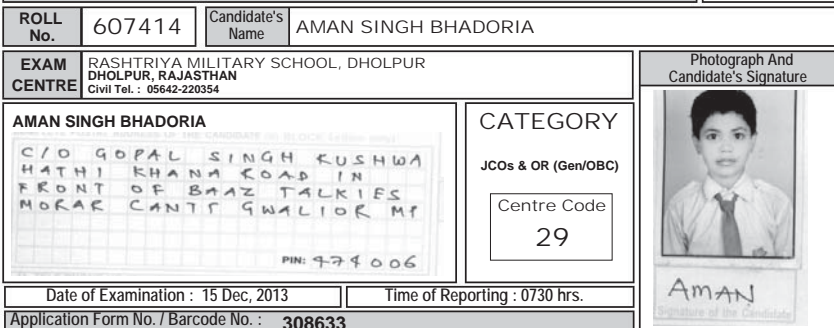 ROLL No. 607414 Candidate's Name AMAN SINGH BHADORIA
EXAM CENTRE
RASHTRIYA MILITARY SCHOOL, DHOLPUR
DHOLPUR, RAJASTHAN
Civil Tel. : 05642-220354
Photograph And
Candidate's Signature
AMAN SINGH BHADORIA
C/O GOPAL SINGH KUSHWA
HATHI KHANA ROAD IN
FRONT OF BAAZ TALKIES
MORAR CANTT GWALIOR MP
PIN: 474006
CATEGORY
JCOs & OR (Gen/OBC)
Centre Code
29
AMAN
Signature of the Candidate
Date of Examination : 15 Dec, 2013
Time of Reporting : 0730 hrs.
Application Form No. / Barcode No. : 308633